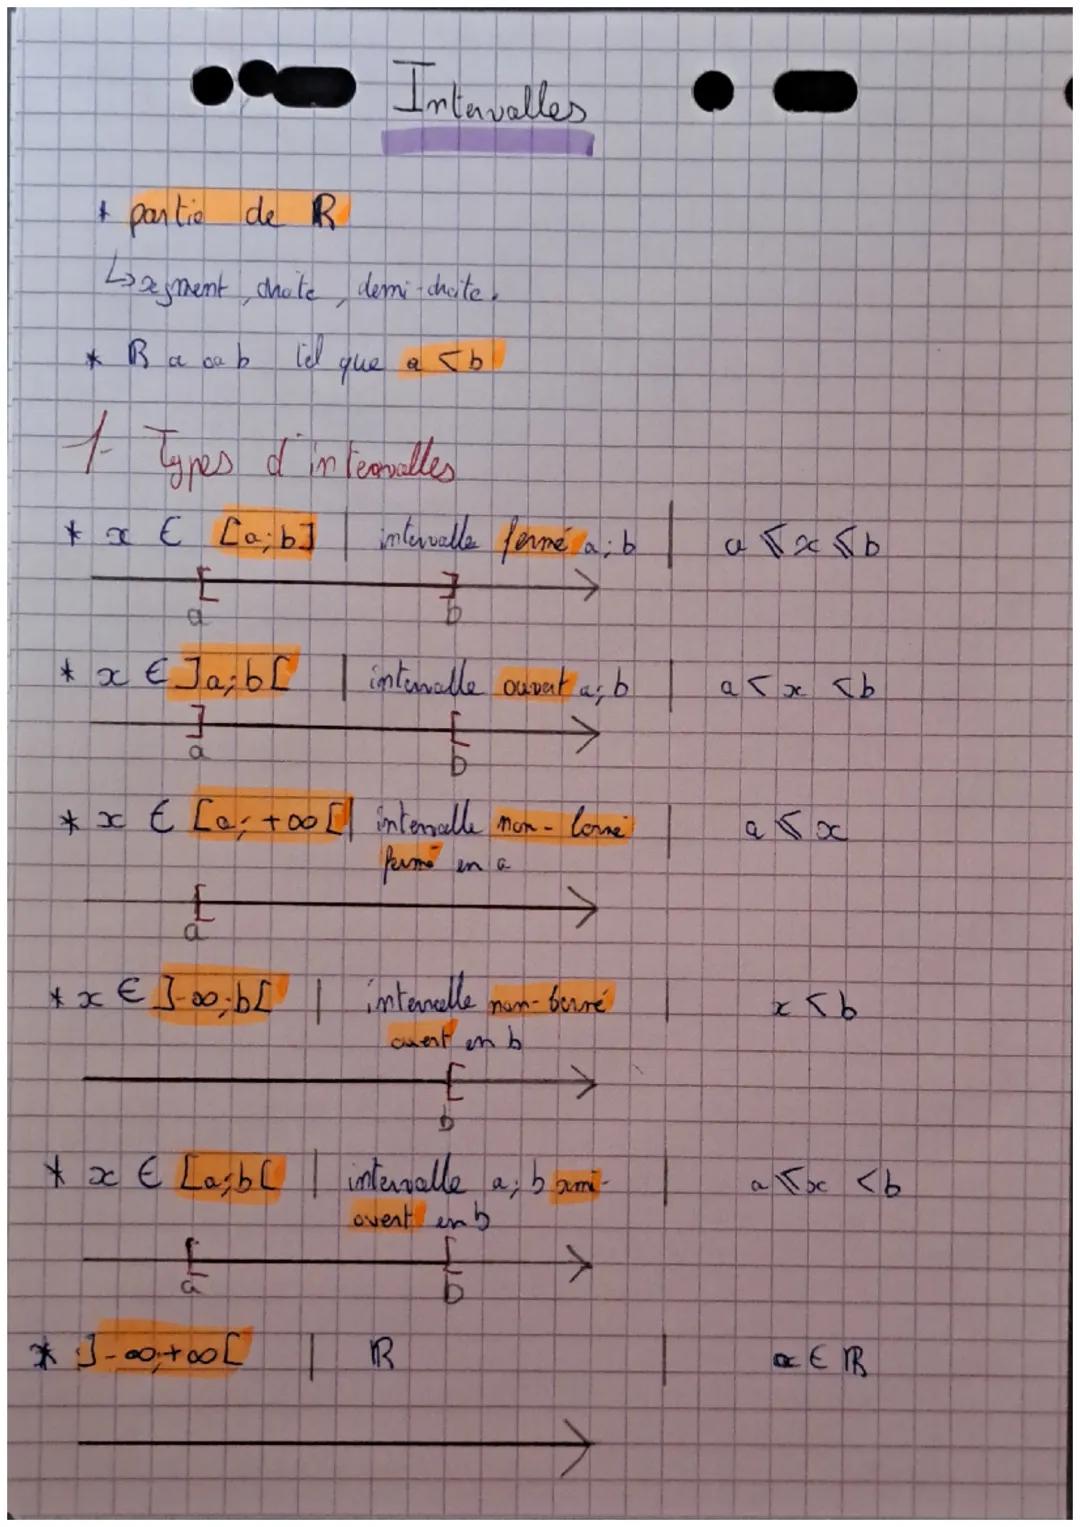 Intervalles
* partie de ℝ
↳ segment, droite, demi-droite.
* ℝ a ou b tel que a < b
1- Types d'intervalles
* x ∈ [a;b] | intervalle fermé a;b | a ⩽ x ⩽ b
a b
* x ∈ ]a;b[ | intervalle ouvert a;b | a < x < b
a b
* x ∈ [a; +∞[ | intervalle non-borné | a ⩽ x
fermé en a
a
* x ∈ ]-∞;b[ | intervalle non-borné | x < b
ouvert en b
b
* x ∈ [a;b[ | intervalle a;b semi- | a ⩽ x < b
ouvert en b
a b
* ]-∞;+∞[ | ℝ | x ∈ ℝ